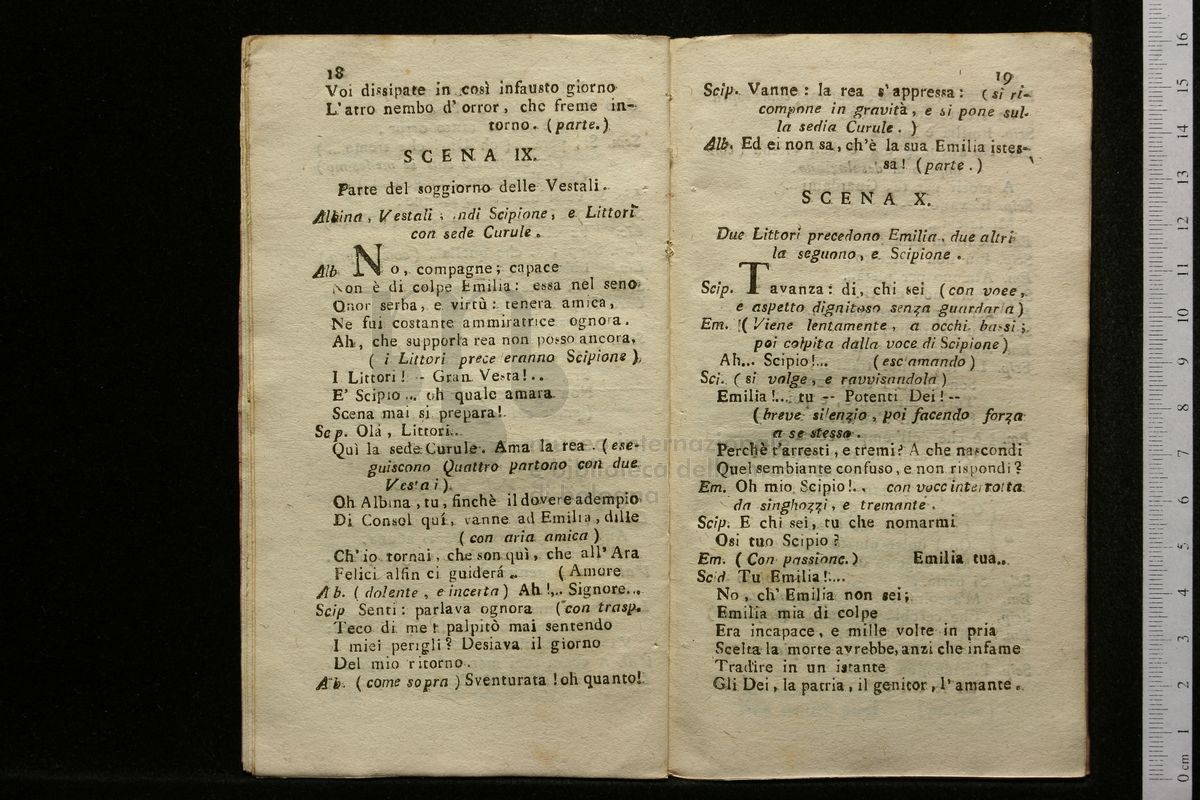 18
Voi dissipate in così infausto giorno
L'atro nembo d'orror, che freme in-
torno. (parte.)
SCENA IX.
Parte del soggiorno delle Vestali.
Albina, Vestali; indi Scipione, e Littori
con sede Curule.
Alb No, compagne; capace
Non è di colpe Emilia: essa nel seno
Onor serba, e virtù: tenera amica,
Ne fui costante ammiratrice ognora.
Ah, che supporla rea non posso ancora,
( i Littori prece eranno Scipione ),
I Littori! - Gran Vesta!..
E' Scipio... oh quale amara
Scena mai si prepara!
Sc p. Olà, Littori...
Quì la sede Curule. Ama la rea. (ese-
guiscono Quattro partono con due
Vesta i)
Oh Albina, tu, finchè il dovere adempio
Di Consol quí, vanne ad Emilia, dille
(con aria amica)
Ch'io tornai, che son quì, che all'Ara
Felici alfin ci guiderá.. (Amore
A b. ( dolente, e incerta) Ah!... Signore...
Scip Senti: parlava ognora (con trasp.
Teco di me? palpitò mai sentendo
I miei perigli? Desiava il giorno
Del mio ritorno.
A b. ( come sopra ) Sventurata! oh quanto!
19
Scip. Vanne: la rea s'appressa: (si ri-
compone in gravità, e si pone sul-
la sedia Curule. )
Alb. Ed ei non sa, ch'è la sua Emilia istes-
sa! (parte.)
SCENA X.
Due Littori precedono Emilia, due altri
la seguono, e Scipione.
Scip. Tavanza: di, chi sei (con voee,
e aspetto dignitoso senza guardarla)
Em. (Viene lentamente, a occhi bassi;
poi colpita dalla voce di Scipione)
Ah... Scipio!... (esc amando)
Sci. ( si volge, e ravvisandola )
Emilia!... tu -- Potenti Dei! --
(breve silenzio, poi facendo forza
a se stesso.
Perchè t'arresti, e tremi? A che nascondi
Quel sembiante confuso, e non rispondi?
Em. Oh mio Scipio!.. con voce interrotta
da singhozzi, e tremante.
Scip. E chi sei, tu che nomarmi
Osi tuo Scipio?
Em. ( Con passione.) Emilia tua...
Sc d Tu Emilia!....
No, ch' Emilia non sei;
Emilia mia di colpe
Era incapace, e mille volte in pria
Scelta la morte avrebbe, anzi che infame
Tradire in un istante
Gli Dei, la patria, il genitor, l'amante.
internazionale
biblioteca della
0 cm 1 2 3 4 5 6 7 8 9 10 11 12 13 14 15 16